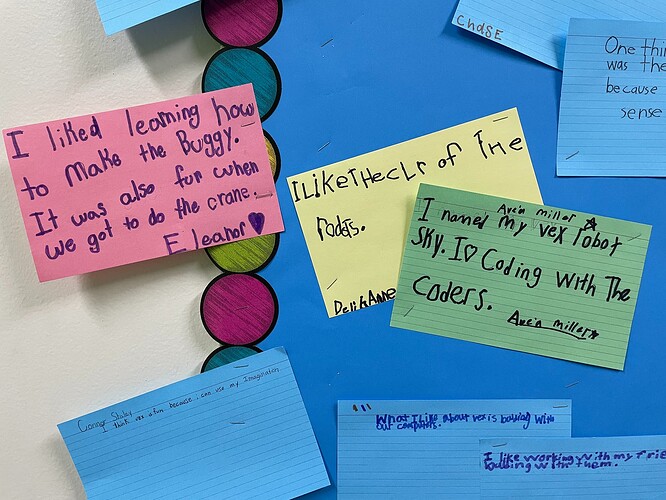 ChASE
One thin
was the
because
sense
I liked learning how
to make the Buggy.
It was also fun when
we got to do the crane.
Eleanor
I LikeTHecLr of THe
roBots.
I named my vex robot
Sky. I♡ Coding With The
Coders.
Conner Staley
I think vex is fun because i can use my Imagination
What I like about vex is bowling with
our computers.
I like working with my frie
building with them.